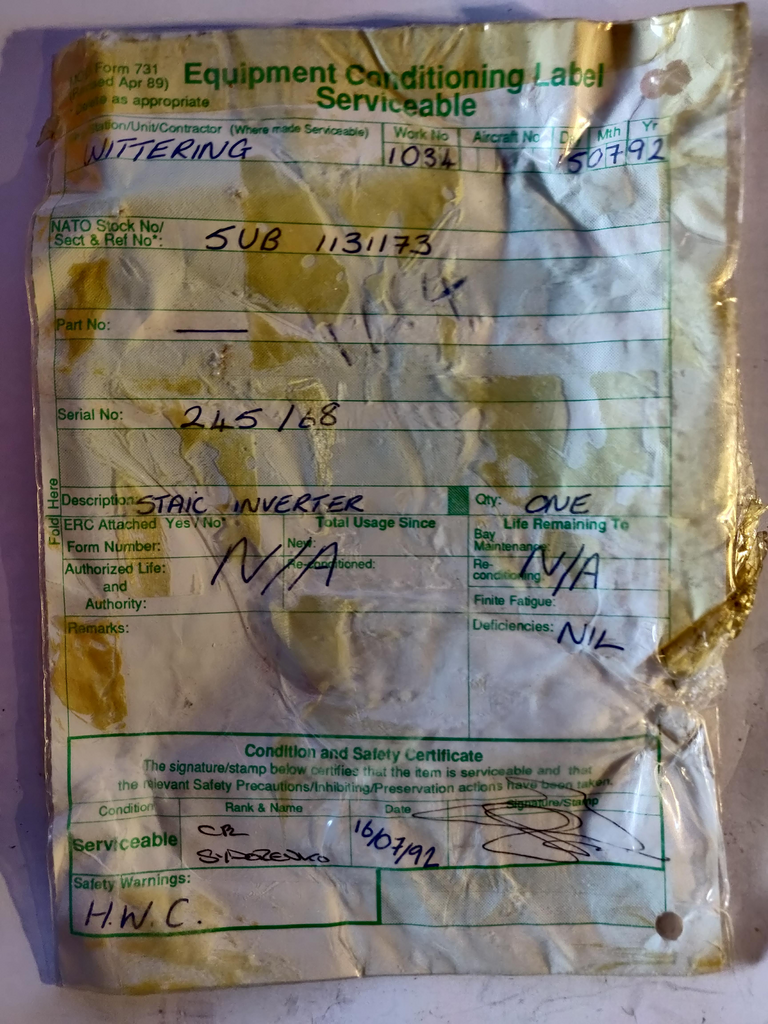 Form 731
Equipment Conditioning Label
Serviceable
Apr 89)
as appropriate
Station/Unit/Contractor (Where made Serviceable)
Work No
Aircraft No
Mth
Yr
WITTERING
1034
150792
NATO Stock No/
Sect & Ref No*:
5UB 1131173
Part No:
Serial No:
245/68
Fold Here
Description:
STAIC INVERTER
Qty:
ONE
ERC Attached Yes/No*
Form Number:
Total Usage Since
New:
Life Remaining To
Bay
Maintenance:
N/A
Authorized Life:
and
Authority:
Re-conditioned:
Re-
conditioning:
N/A
Finite Fatigue:
Remarks:
Deficiencies:
NIL
Condition and Safety Certificate
The signature/stamp below certifies that the item is serviceable and that
the relevant Safety Precautions/Inhibiting/Preservation actions have been taken.
Condition
Rank & Name
Date
Signature/Stamp
Serviceable
16/07/92
Safety Warnings:
H.W.C.